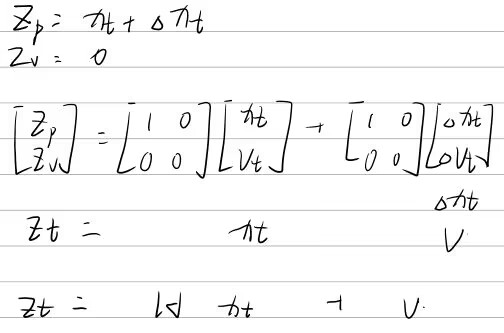 Zp = xt + Δxt
Zv = 0
[Zp Zv] = [1 0 0 0] [xt vt] + [1 0 0 0] [Δxt Δvt]
Δxt
Zt = xt V
Zt = H xt + V.